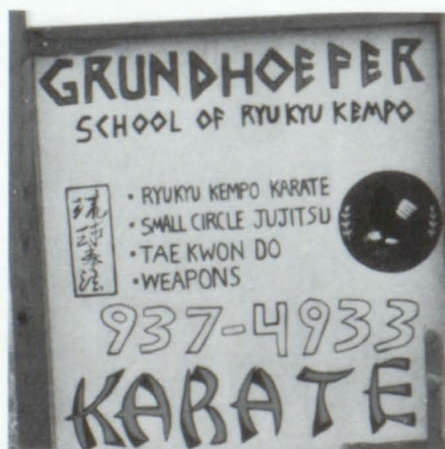 GRUNDHOEFER
SCHOOL OF RYUKYU KEMPO
琉球拳法
• RYUKYU KEMPO KARATE
• SMALL CIRCLE JUJITSU
• TAE KWON DO
• WEAPONS
937-4933
KARATE